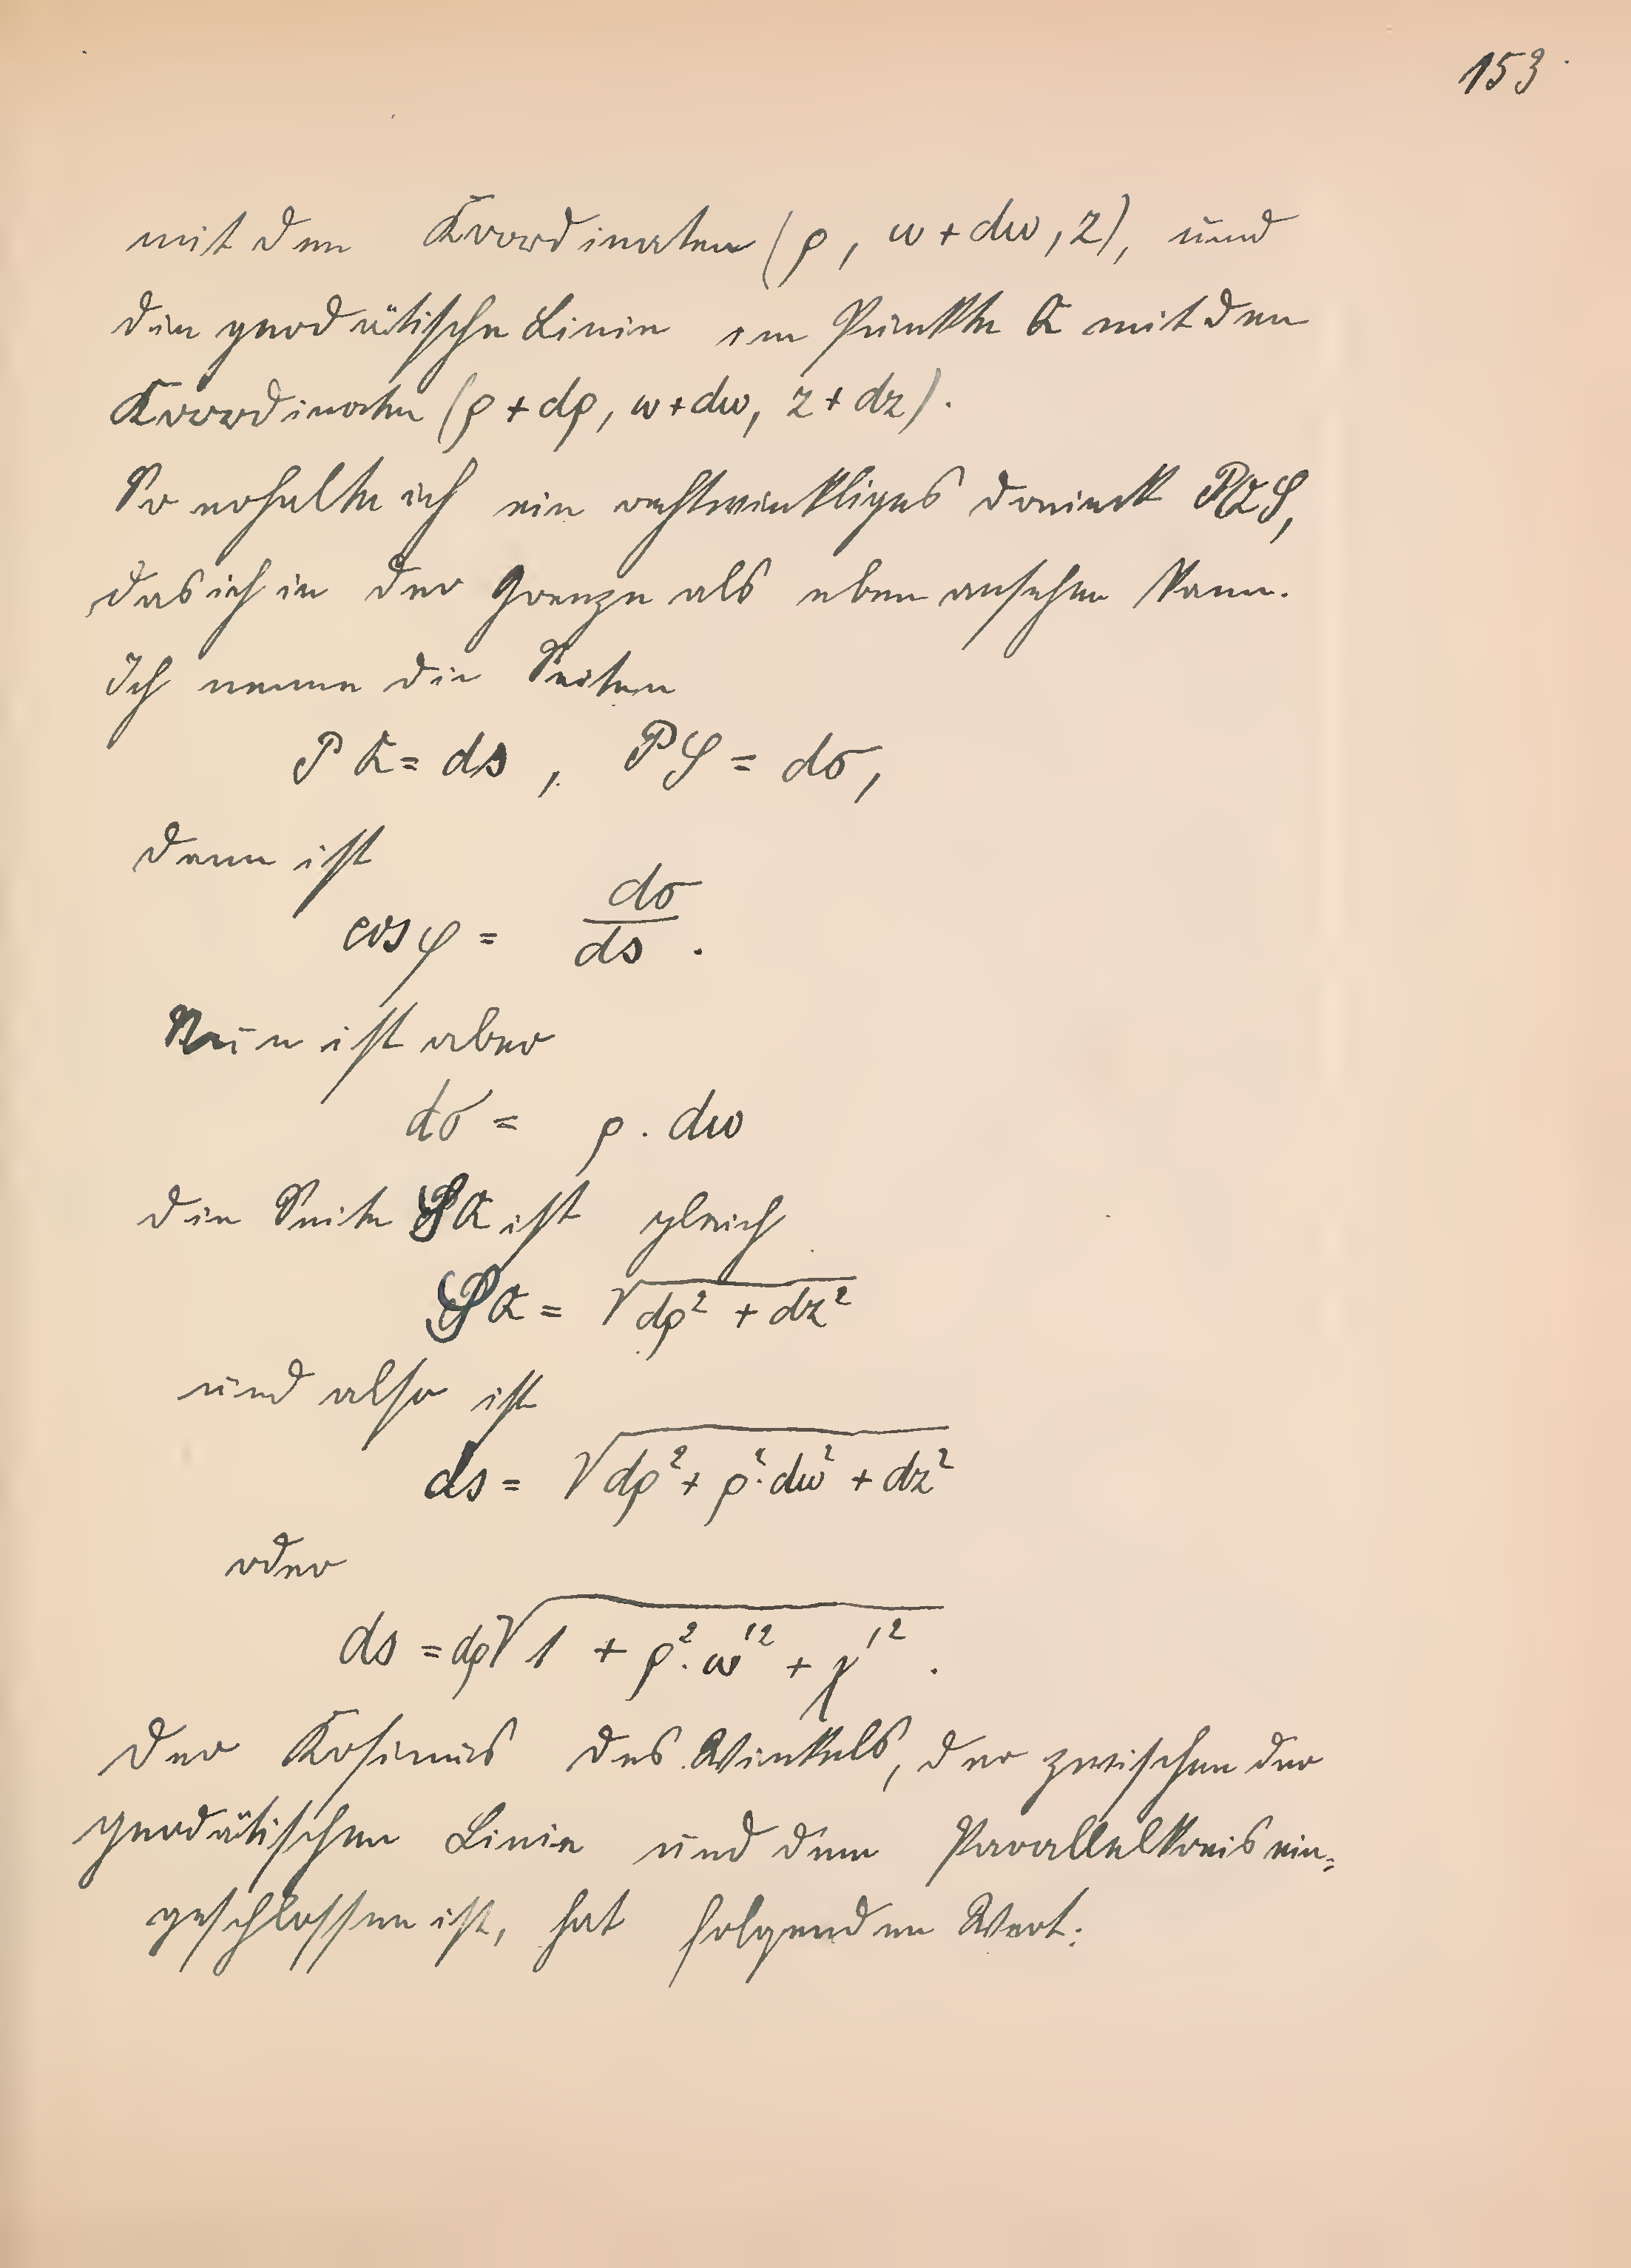 153
mit den Koordinaten (ρ, ω + dω, z), und
die geodätische Linie im Punkte R mit den
Koordinaten (ρ + dρ, ω + dω, z + dz).
So erhalte ich ein rechtwinkliges Dreieck PRS,
das ich in der Grenze als eben ansehen kann.
Ich nenne die Seiten
PR = ds, PS = dσ,
dann ist
cos φ = dσ/ds.
Nun ist aber
dσ = ρ . dω
die Seite SR ist gleich
SR = √(dρ² + dz²)
und also ist
ds = √(dρ² + ρ² . dω² + dz²)
oder
ds = dρ √(1 + ρ² . ω'² + χ'²).
Der Kosinus des Winkels, der zwischen der
geodätischen Linie und dem Parallelkreis ein=
geschlossen ist, hat folgenden Wert: